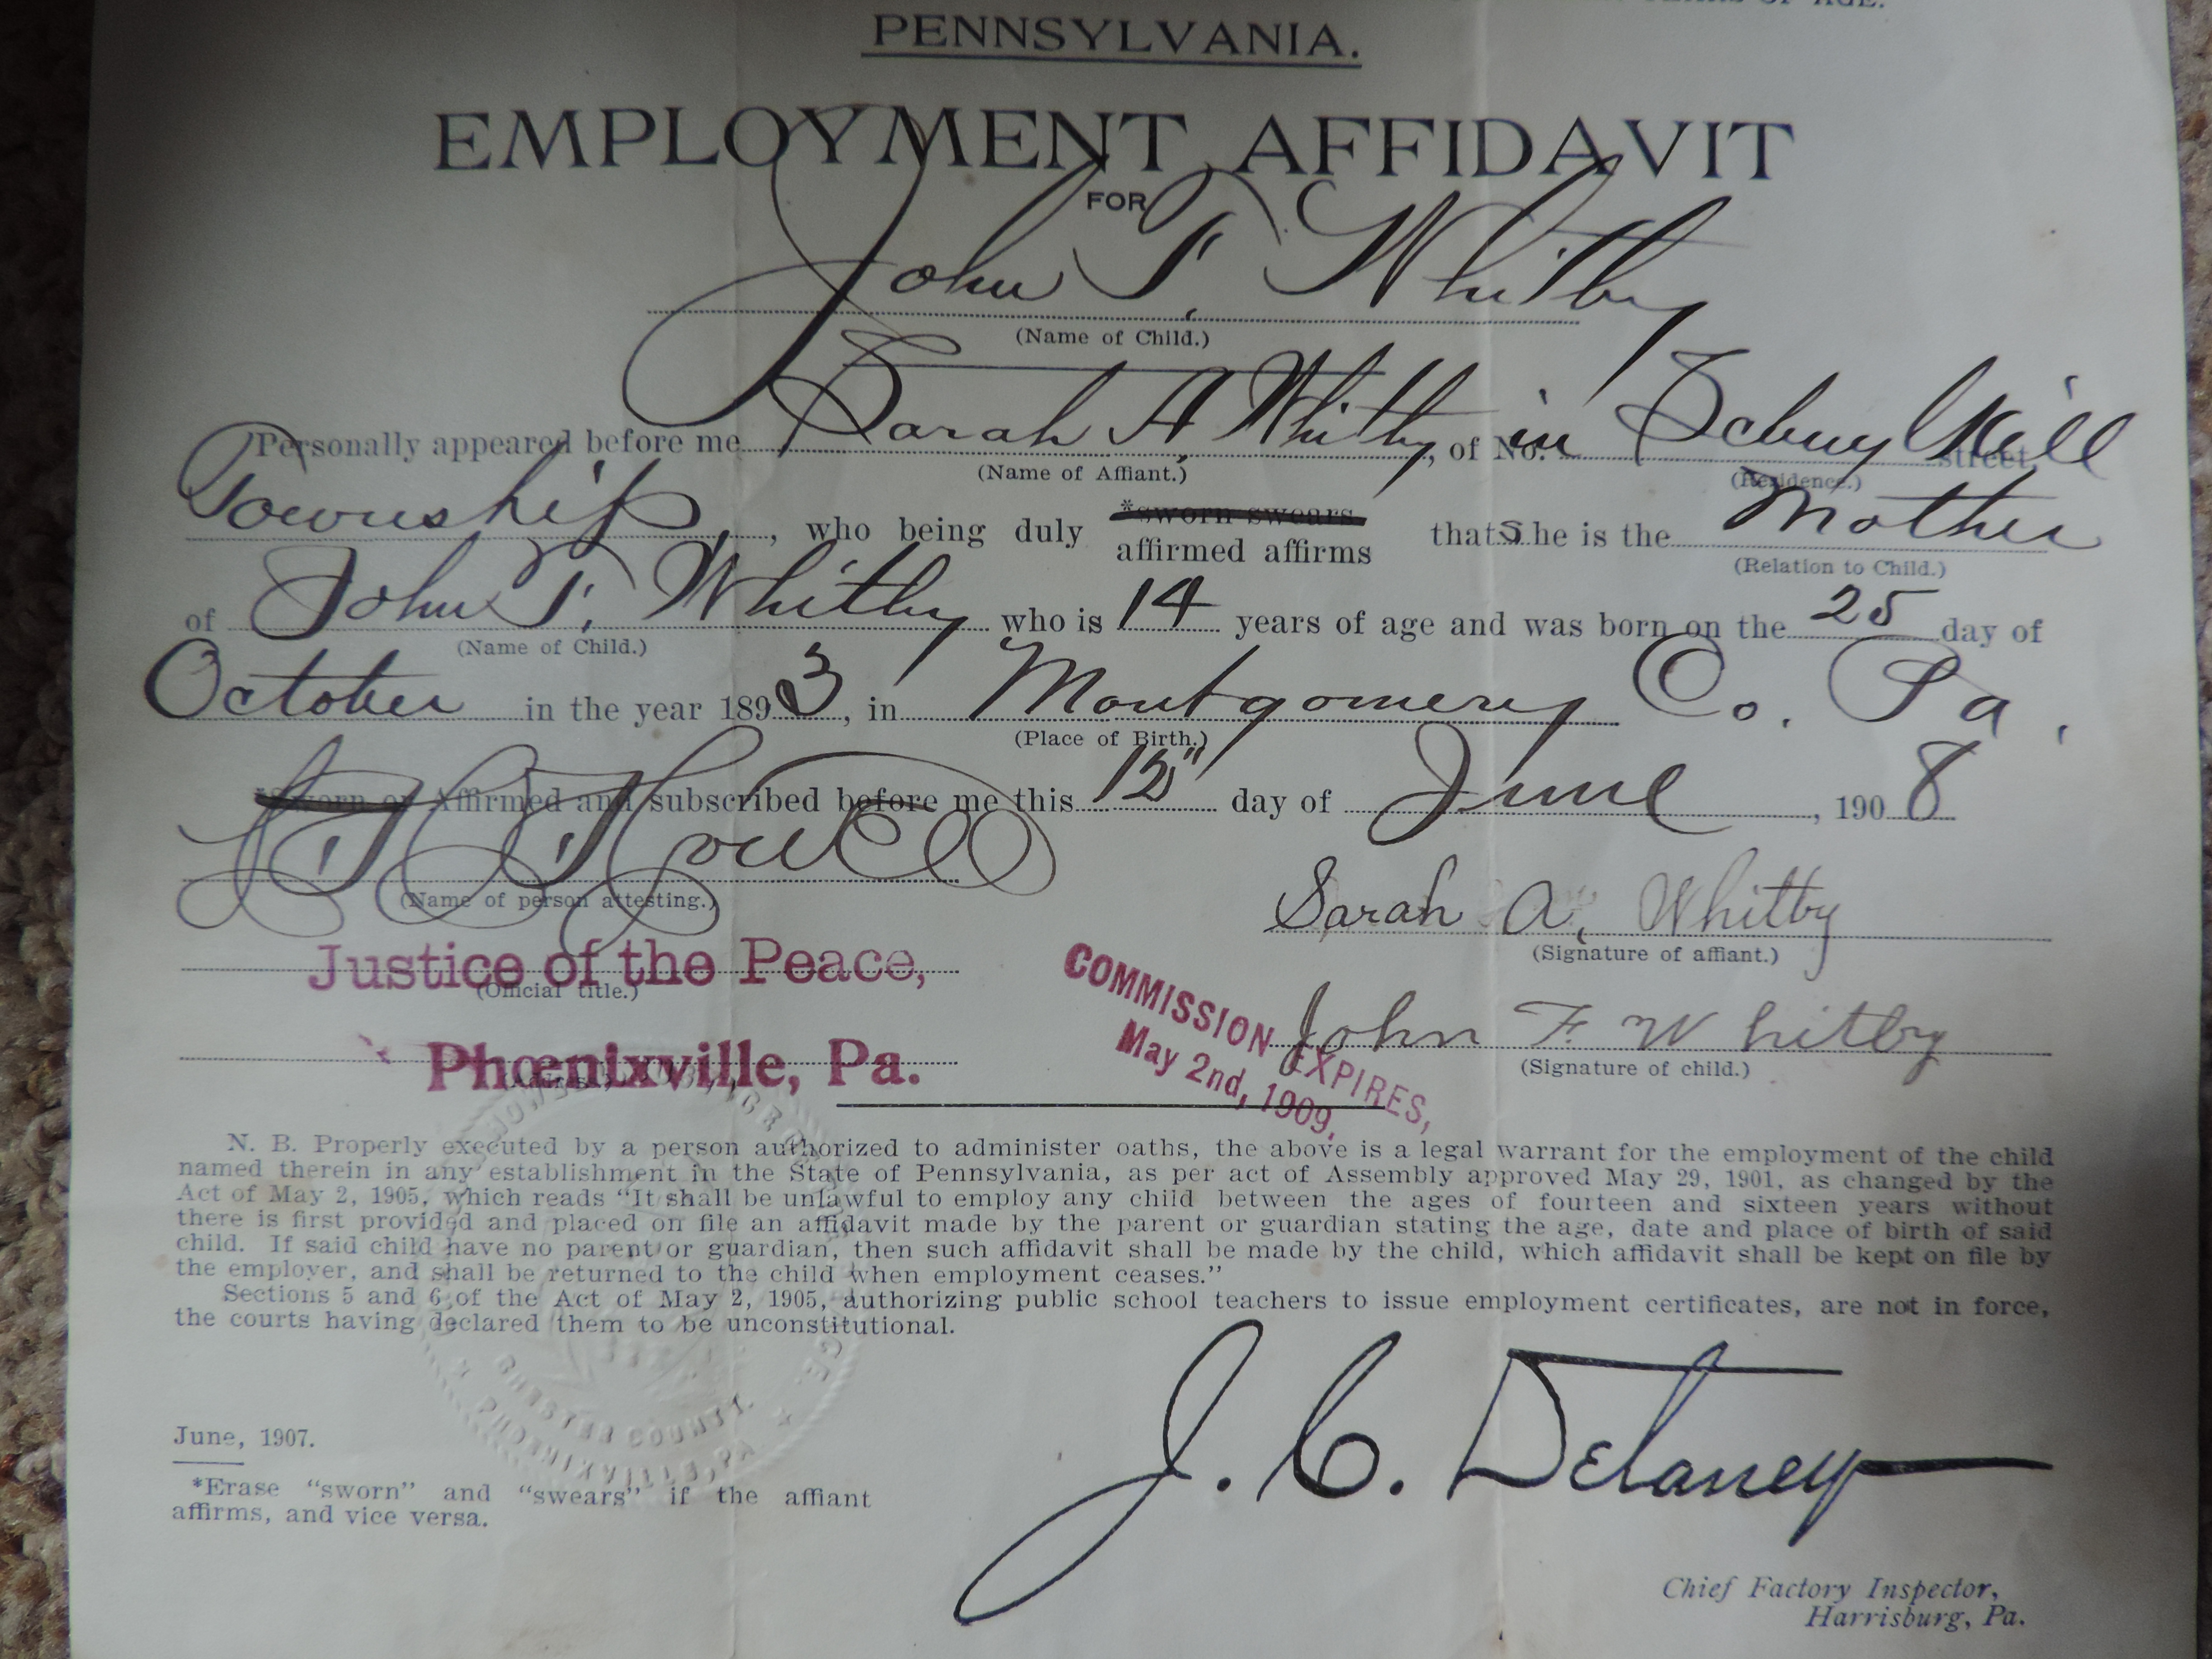 OF AGE.
PENNSYLVANIA.
EMPLOYMENT AFFIDAVIT
FOR
John T. Whitby
(Name of Child.)
Personally appeared before me Sarah A. Whitby, of No. in Schuylkill street,
(Name of Affiant.) (Residence.)
Township, who being duly *sworn swears affirmed affirms that s he is the Mother
(Relation to Child.)
of John T. Whitby who is 14 years of age and was born on the 25 day of
(Name of Child.)
October in the year 1893, in Montgomery Co. Pa.
(Place of Birth.)
*Sworn or Affirmed and subscribed before me this 15" day of June, 1908
Howell
(Name of person attesting.)
Sarah A. Whitby
(Signature of affiant.)
Justice of the Peace,
(Official title.)
COMMISSION EXPIRES,
May 2nd, 1909.
John F. Whitby
(Signature of child.)
Phœnixville, Pa.
(Address.)
N. B. Properly executed by a person authorized to administer oaths, the above is a legal warrant for the employment of the child
named therein in any establishment in the State of Pennsylvania, as per act of Assembly approved May 29, 1901, as changed by the
Act of May 2, 1905, which reads “It shall be unlawful to employ any child between the ages of fourteen and sixteen years without
there is first provided and placed on file an affidavit made by the parent or guardian stating the age, date and place of birth of said
child. If said child have no parent or guardian, then such affidavit shall be made by the child, which affidavit shall be kept on file by
the employer, and shall be returned to the child when employment ceases.”
Sections 5 and 6 of the Act of May 2, 1905, authorizing public school teachers to issue employment certificates, are not in force,
the courts having declared them to be unconstitutional.
CHESTER COUNTY.
PHOENIXVILLE, PA
J. C. Delaney
June, 1907.
*Erase “sworn” and “swears” if the affiant
affirms, and vice versa.
Chief Factory Inspector,
Harrisburg, Pa.